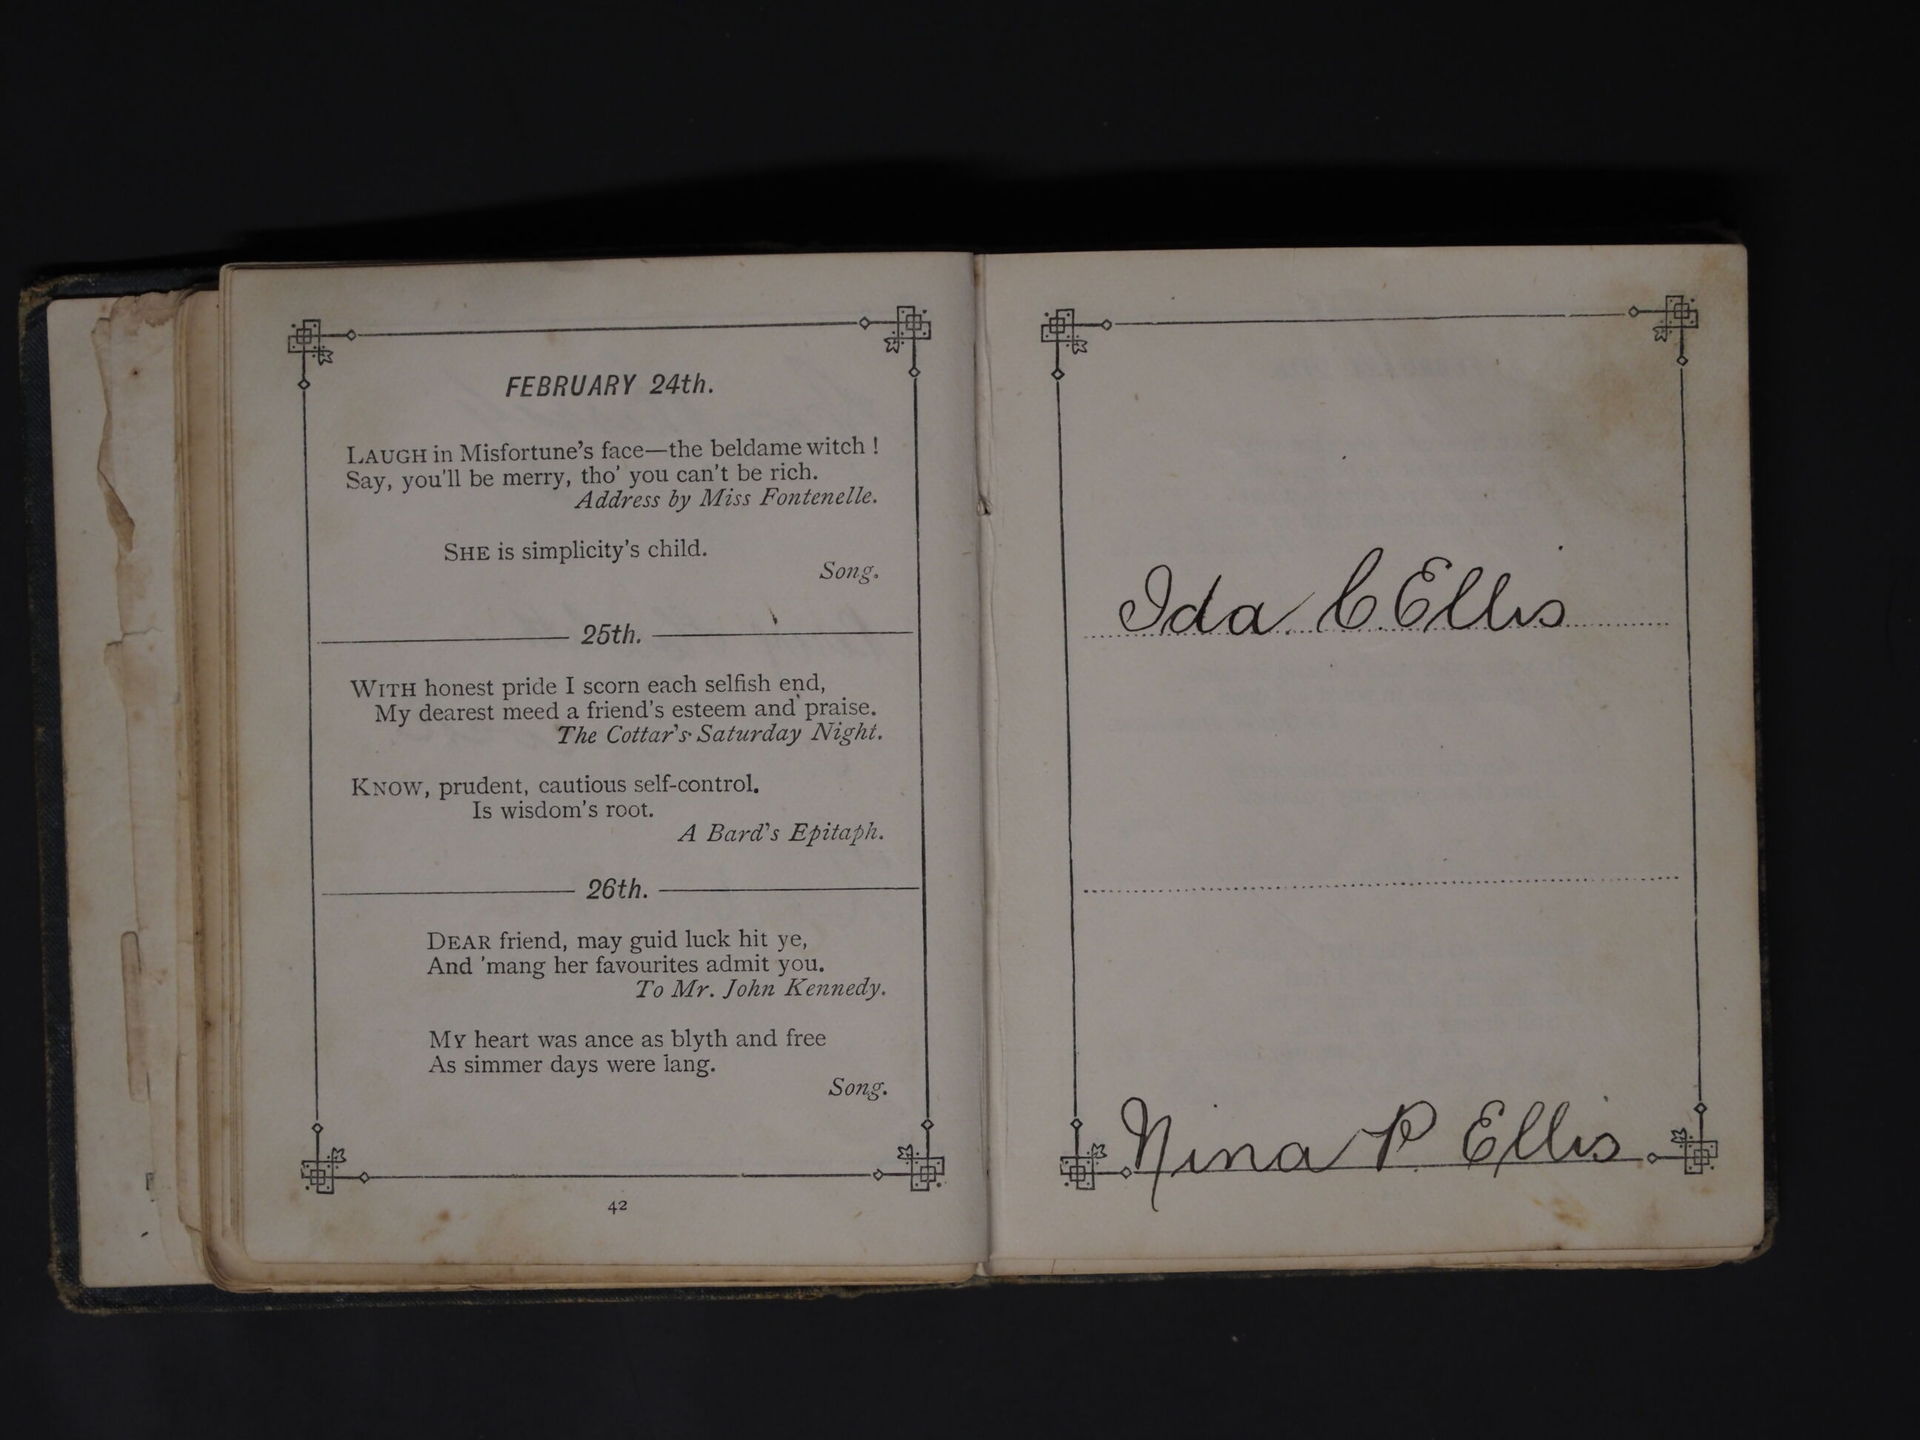 FEBRUARY 24th.
LAUGH in Misfortune's face—the beldame witch !
Say, you'll be merry, tho' you can't be rich.
Address by Miss Fontenelle.
SHE is simplicity's child.
Song.
25th.
WITH honest pride I scorn each selfish end,
My dearest meed a friend's esteem and praise.
The Cottar's Saturday Night.
KNOW, prudent, cautious self-control.
Is wisdom's root.
A Bard's Epitaph.
26th.
DEAR friend, may guid luck hit ye,
And 'mang her favourites admit you.
To Mr. John Kennedy.
MY heart was ance as blyth and free
As simmer days were lang.
Song.
42
Ida. C. Ellis
Nina P. Ellis